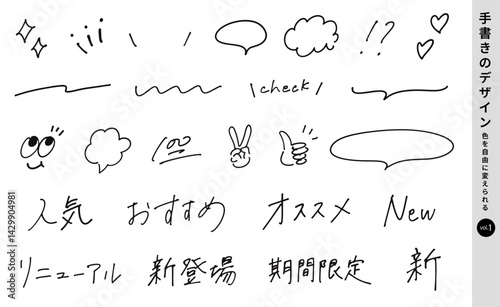 !?
\check/
100
人気 おすすめ オススメ New
リニューアル 新登場 期間限定 新
手書きのデザイン 色を自由に変えられる vol.1
Adobe Stock | #1429904981